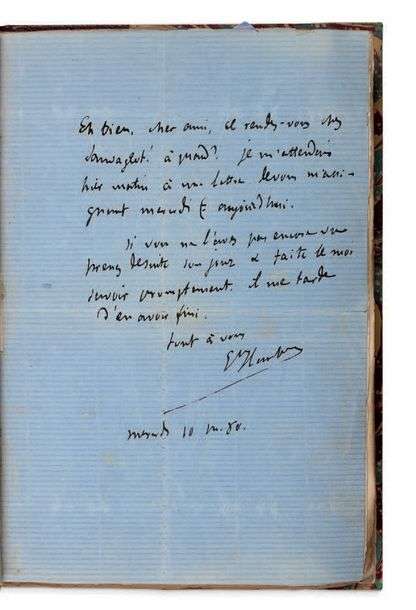 Eh bien, cher ami, et rendez-vous chez
à quand? je m'attendais
hier matin à une lettre de vous m'assi-
gnant mercredi aujourd'hui.
si vous ne l'avez pas encore vu
prenez desuite son jour & faite le moi
savoir promptement. il me tarde
d'en avoir fini.
tout à vous
Gve Flaubert
mercredi 10 80.